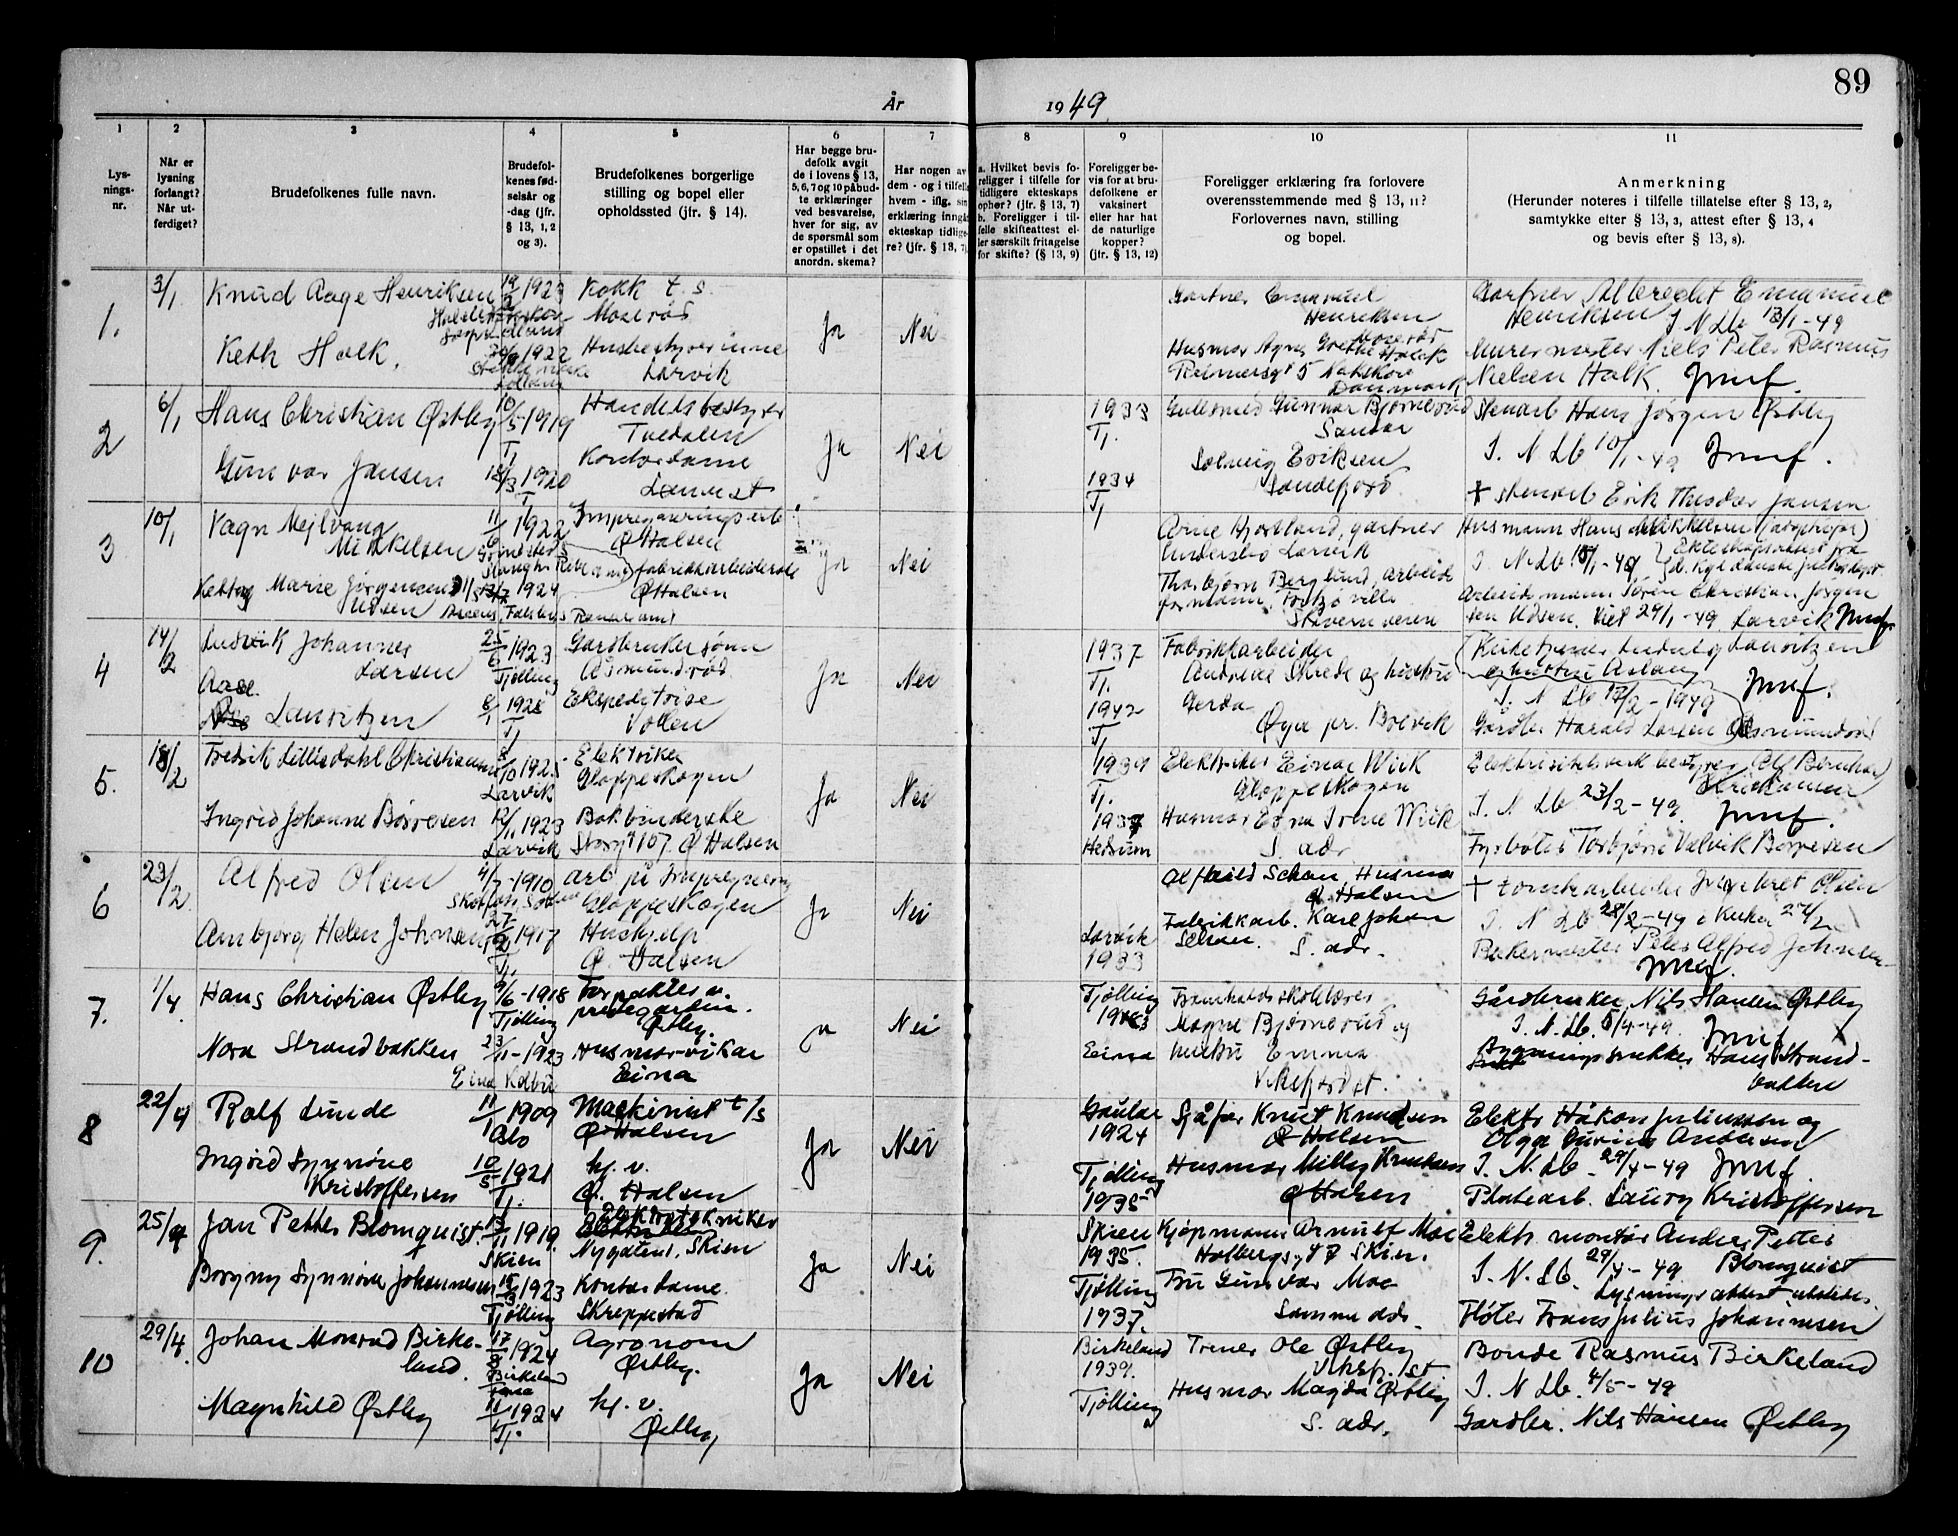 89
År 1949.
1
2
3
4
5
6
7
8
9
10
11
Lys-
nings-
nr.
Når er
lysning
forlangt?
Når ut-
ferdiget?
Brudefolkenes fulle navn.
Brudefol-
kenes fød-
selsår og
-dag (jfr.
§ 13, 1, 2
og 3).
Brudefolkenes borgerlige
stilling og bopel eller
opholdssted (jfr. § 14).
Har begge bru-
defolk avgit
de i lovens § 13,
5, 6, 7 og 10 påbud-
te erklæringer
ved besvarelse,
hver for sig, av
de spørsmål som
er opstillet i det
anordn. skema?
Har nogen av
dem - og i tilfelle
hvem - iflg. sin
erklæring inngått
ekteskap tidlige-
re? (jfr. § 13, 7)
a. Hvilket bevis fo-
religger i tilfelle for
tidligere ekteskaps
ophør? (jfr. § 13, 7)
b. Foreligger i til-
felle skifteattest el-
ler særskilt fritagelse
for skifte? (§ 13, 9)
Foreligger be-
vis for at bru-
defolkene er
vaksinert
eller har hat
de naturlige
kopper?
(jfr. § 13, 12)
Foreligger erklæring fra forlovere
overensstemmende med § 13, 11?
Forlovernes navn, stilling
og bopel.
Anmerkning
(Herunder noteres i tilfelle tillatelse efter § 13, 2,
samtykke efter § 13, 3, attest efter § 13, 4
og bevis efter § 13, 8).
1.
3/1
Knud Aage Henriksen
19/2 1923
Kokk t. s.
Moserød
Keth Halk.
1922
Husbestyrerinne
Larvik
Ja
Nei
Gartner Emanuel
Henriksen
Moserød
Husmor Agnes Grethe Halck
5 Nakskov
Danmark
Gartner Albrecht Emanuel
Henriksen J. N Lb 13/1-49
Murermester Niels Peter Rasmus
Nielsen Halk.
2
6/1
Hans Christian Østby
10/5-1919
Tj.
Handelsbestyrer
Tvedalen
Gunvor Jansen
18/3 1920
Tj.
Kontordame
Ja
Nei
1933
Tj.
1934
Tj
Gullsmed Gunnar Bjørnerud
Sandar
Solveig Eriksen
Sandefjord
Stenarb Hans Jørgen Østby
J. N Lb 10/1-49
+ stenarb Erik Theodor Jansen
3
10/1
Vagn Mejlvang
Mikkelsen
11/6 1922
Impregneringsarb
Ø Halsen
Ketty Marie Jørgensen
Udsen
1924
fabrikkarbeiderske
Ø Halsen
Ja
Nei
Arne Hjortland, gartner
Larvik
Thorbjørn Berglund, arbeids
formann, Fritzø ville
Stavern veien
Husmann Hans Mikkelsen
J. N. Lb 15/1-49
Arbeidsmann Søren Christian Jørgen
sen Udsen. Viet 29/1-49 Larvik
4
14/2
Ludvik Johannes
Larsen
25/6 1923
Tjølling
Gardbrukersønn
Åsmundrød
Aase
Lauritzen
8/1 1928
Tj
Ekspeditrise
Vollen
Ja
Nei
1937
Tj.
1942
Tj
Fabrikkarbeider
Andreas Skrede og hustru
Gerda
Øya pr. Brevik
Kirketjener Ludvig Lauritzen
og hustru Aslaug
J. N Lb 17/2-1949
Gardbr Harald Larsen Åsmundrød
5.
18/2
Fredrik Lillisdahl Christiansen
/10 1925
Larvik
Elektriker
Gloppeskogen
Ingrid Johanne Børresen
12/11 1923
Larvik
Bokbinderske
Storgt 107. Ø Halsen
Ja
Nei
1934
Tj.
1937
Hedrum
Elektriker Einar Wiik
Gloppeskogen
Husmor Edna Irene Wiik
S. adr
Elektrisitetsverk bestyrer Alf Bernhard
Kristiansen
J. N Lb 23/2-49.
Fyrbøter Torbjørn Valvik Børresen
6
23/2
Alfred Olsen
4/7-1910
arb på Impregnering
Gloppeskogen
Ambjorg Helen Johnsen
27/2 1917
Tj.
Hushjelp
Ø. Halsen
Ja
Nei
Larvik
1933
Alfhild Schau, Husmor
Ø. Halsen
Fabrikkarb. Karl Johan
Schau. S. adr.
+ tomtearbeider Ingebret Olsen
J. N Lb 28/2-49 i Kirken 27/2
Bakermester Peter Alfred Johnsen
7.
1/4
Hans Christian Østby
9/6-1918
Tjølling
Forpakter av
prestegarden.
Østby.
Nora Strandbakken
23/11-1923
Eina Kolbu
Husmor-vikar
Eina
Ja
Nei
Tjølling
Eina
Framhaldsskolelærer
Magne Bjørnerud og
hustru Emma
Vikefjordet.
Gårdbruker Nils Hansen Østby
J. N. Lb. 5/4-49.
Bygningssnekker Hans Strand-
bakken
8
22/4
Ralf Lunde
11/1 1909
Oslo
Maskinist t/s
Ø Halsen
Ingrid Synnøve
Kristoffersen
10/5 1921
Tj.
hj. v.
Ø. Halsen
Ja
Nei
Gaular
1924
Tjølling
1935
Sjåfør Knut Knudsen
Ø Halsen
Husmor Milly Knudsen
Ø Halsen
Elektr Håkon Juliussen og
Olga Andersen
J. N. Lb. 29/4-49
Platearb. Laury Kristoffersen
9.
25/4
Jan Petter Blomquist.
/11 1919.
Skien
Elektrotekniker
Nygatens. Skien
Borgny Synnøve Johannesen
1923
Tjølling
Kontordame.
Skreppestad
Ja
Nei
Skien
1935.
Tjølling
1937.
Kjøpmann Arnulf Moe
Holbergsgt 7 Skien.
Fru Gunvor Moe
Samme adr.
Elektr. montør Anders Petter
Blomquist
J. N. Lb. 29/4-49
Lysningsattest utstedt.
Fløter Frans Julius Johannesen
10
29/4.
Johan Monrad Birke-
land.
17/8 1924
Birkeland
Agronom
Østby.
Magnhild Østby
11/1 1924
Tj.
hj. v.
Østby
Ja
Nei
Birkeland
1939.
Tjølling
Trener Ole Østby
Husmor Magda Østby
S. adr.
Bonde Rasmus Birkeland
J. N Lb. 4/5-49
Gardbr. Nils Hansen Østby